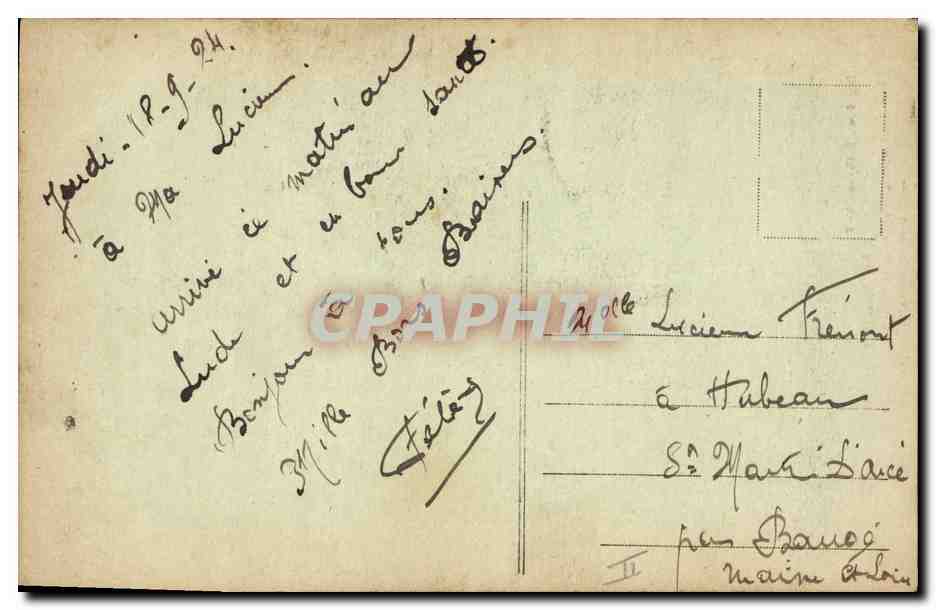 Jeudi - 18-9-24.
à Ma Lucienne.
arrivé ce matin au
Lude et en bonne santé.
Bonjour à tous.
Mille Bons Baisers.
CPARHIL
Melle Lucienne Frémont
à Hubeau
St Martin D'arcé
par Baugé
Maine et Loire
II